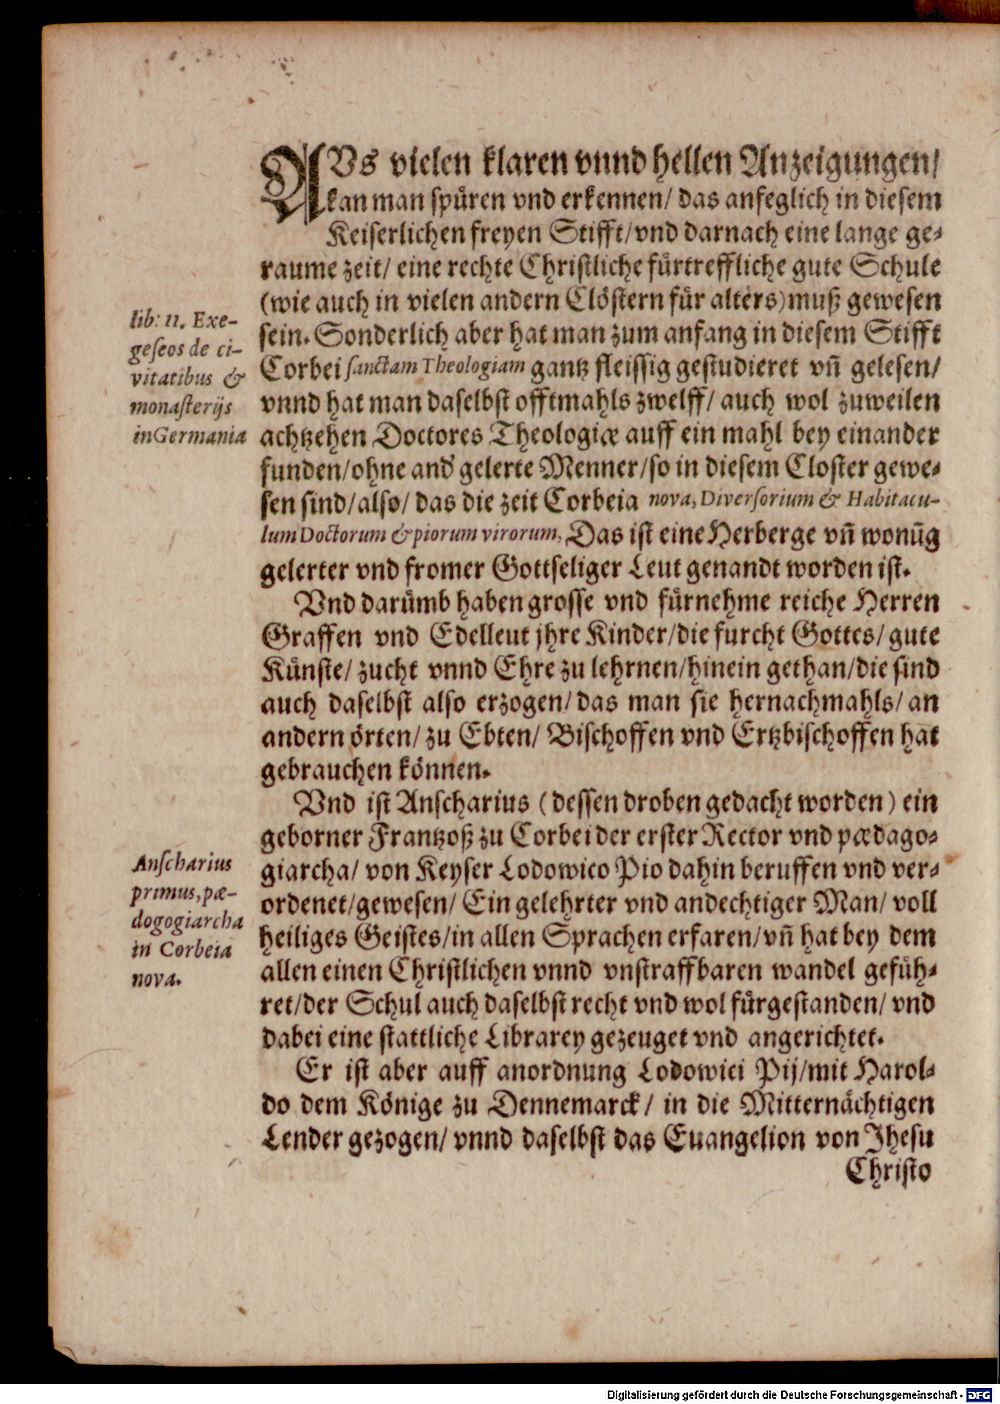 AVs vielen klaren vnnd hellen Anzeigungen/
kan man spüren vnd erkennen/ das anfeglich in diesem
Keiserlichen freyen Stifft/ vnd darnach eine lange ge-
raume zeit/ eine rechte Christliche fürtreffliche gute Schule
(wie auch in vielen andern Clöstern für alters) muß gewesen
sein. Sonderlich aber hat man zum anfang in diesem Stifft
Corbei sanctam Theologiam gantz fleissig gestudieret vn̄ gelesen/
vnnd hat man daselbst offtmahls zwelff/ auch wol zuweilen
achtzehen Doctores Theologiæ auff ein mahl bey einander
funden/ ohne and' gelerte Menner/ so in diesem Closter gewe-
sen sind/ also/ das die zeit Corbeia nova, Diversorium & Habitacu-
lum Doctorum & piorum virorum, Das ist eine Herberge vn̄ wonūg
gelerter vnd fromer Gottseliger Leut genandt worden ist.
Vnd darümb haben grosse vnd fürnehme reiche Herren
Graffen vnd Edelleut jhre Kinder/ die furcht Gottes/ gute
Künste/ zucht vnnd Ehre zu lehrnen/ hinein gethan/ die sind
auch daselbst also erzogen/ das man sie hernachmahls/ an
andern örten/ zu Ebten/ Bischoffen vnd Ertzbischoffen hat
gebrauchen können.
Vnd ist Anscharius (dessen droben gedacht worden) ein
geborner Frantzoß zu Corbei der erster Rector vnd pædago-
giarcha/ von Keyser Lodowico Pio dahin beruffen vnd ver-
ordenet/ gewesen/ Ein gelehrter vnd andechtiger Man/ voll
heiliges Geistes/ in allen Sprachen erfaren/ vn̄ hat bey dem
allen einen Christlichen vnnd vnstraffbaren wandel gefüh-
ret/ der Schul auch daselbst recht vnd wol fürgestanden/ vnd
dabei eine stattliche Librarey gezeuget vnd angerichtet.
Er ist aber auff anordnung Lodowici Pij/ mit Harol-
do dem Könige zu Dennemarck/ in die Mitternächtigen
Lender gezogen/ vnnd daselbst das Euangelion von Jhesu
Christo
lib: 11. Exe-
geseos de ci-
vitatibus &
monasterijs
in Germania
Anscharius
primus, pæ-
dogogiarcha
in Corbeia
nova.
Digitalisierung gefördert durch die Deutsche Forschungsgemeinschaft - DFG